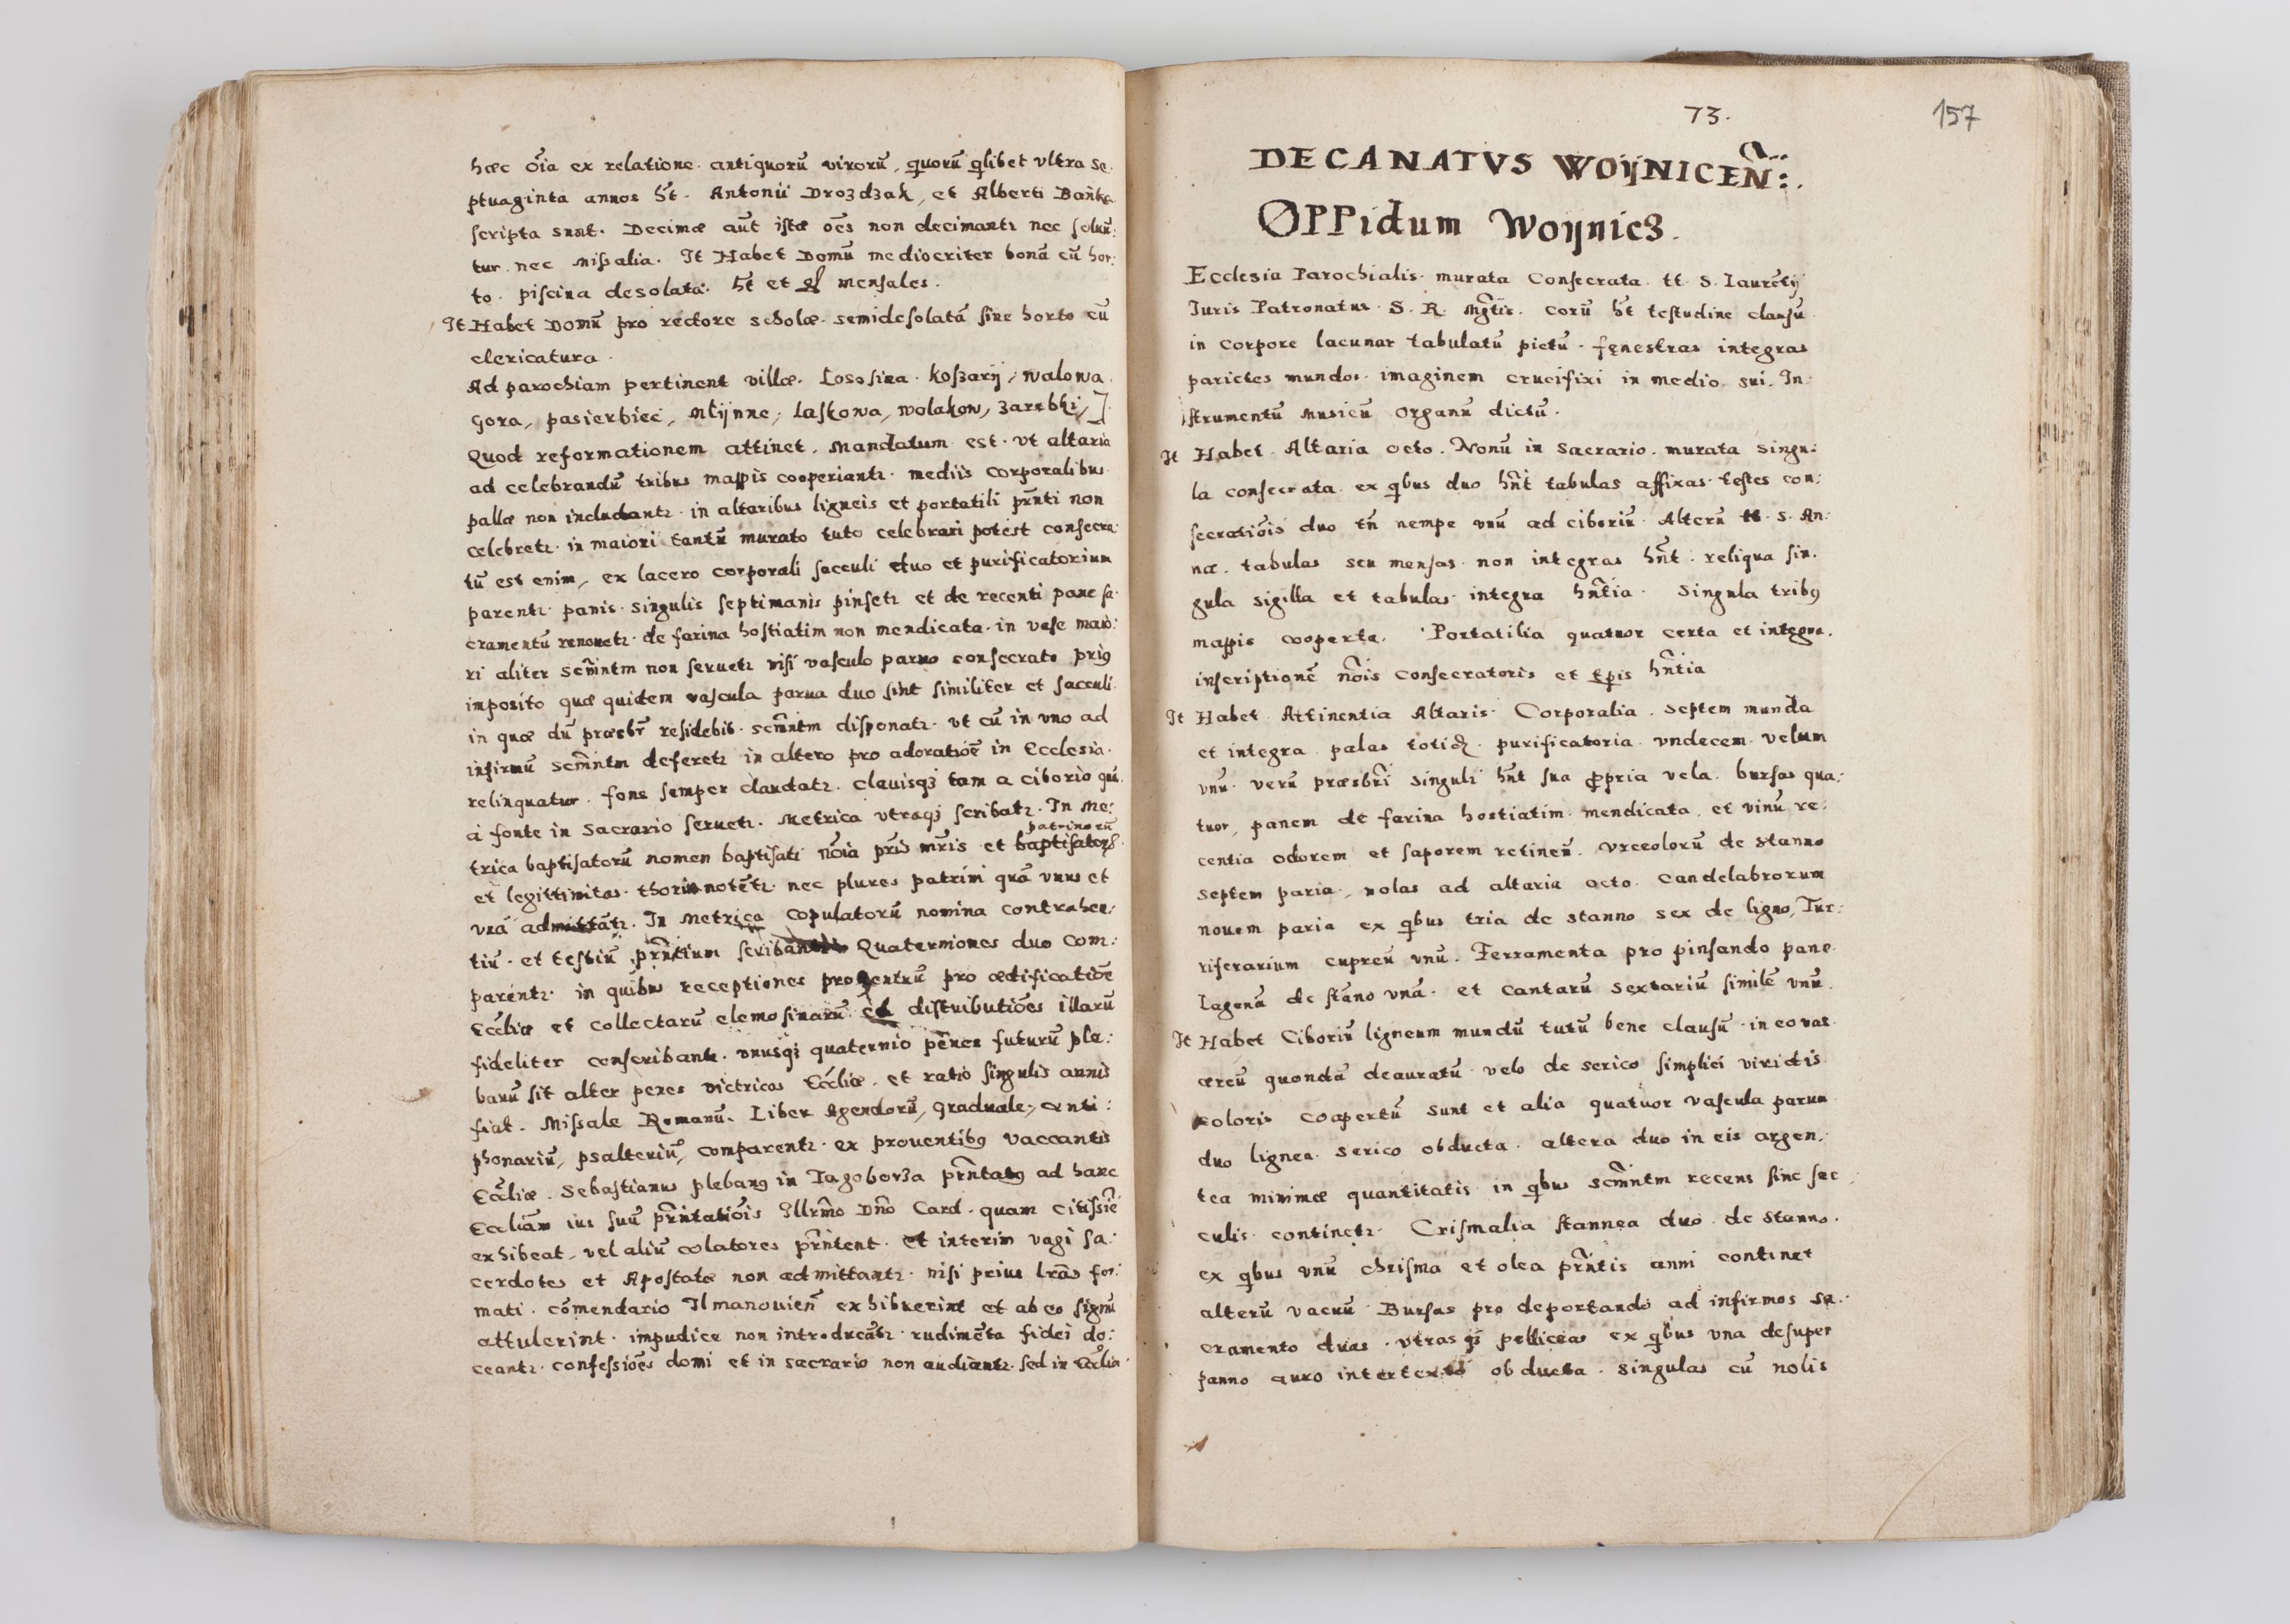 hæc oĩa ex relatione antiquorũ virorũ, quorũ qlibet vltra se.
ptuaginta annos ht̃. Antonii Drozdzak, et Alberti Bańka
scripta sunt. Decimæ aũt istæ oẽs non decimantr nec soluũ:
tur nec missalia. It Habet Domũ mediocriter bonã cũ hor:
to. piscina desolata. ht̃ et mensales.
It Habet Domũ pro rectore scholæ semidesolatã sine horto cũ
clericatura.
Ad parochiam pertinent villæ. Lososina. koszarÿ, walowa
gora, pasierbiec, Mlÿnne, laskowa, wolakow, zarebki,
Quod reformationem attinet, Mandatum est. vt altaria
ad celebrandũ tribus mappis cooperiantr. mediis corporalibus
pallæ non includantr. in altaribus ligneis et portatili prñti non
celebretr. in maiori tantũ murato tuto celebrari potest consecra:
tũ est enim, ex lacero corporali sacculi duo et purificatorium
parentr. panis singulis septimanis pinsetr et de recenti pane sa.
cramentũ renouetr. de farina hostiatim non mendicata. in vase maio:
ri aliter scm̃ntm non seruetr nisi vasculo paruo consecrato prius
imposito quæ quidem vascula parua duo sint similiter et sacculi.
in quæ dũ præsbr̃ residebit. scm̃ntm disponatr. vt cũ in vno ad
infirmũ scm̃ntm deferetr in altero pro adoratiõe in Ecclesia.
relinquatur. fons semper claudatr. clauisqз tam a ciborio quã
a fonte in Sacrario seruetr. Metrica vtraqз scribatr. In Me:
patrinorũ
trica baptisatorũ nomen baptisati nõia pr̃is mr̃is et baptisatorũ
et legittimitas thori notẽtr. nec plures patrini quã vnus et
vnã admittãtr. In Metrica copulatorũ nomina contrahen:
tiũ. et testiũ prñtium scribantr Quaterniones duo com:
parentr. in quibus receptiones prouentuũ pro ædificatiõe
Eccliæ et collectarũ elemosinarũ et distributiões illarũ
fideliter conscribantr. vnusqз quaternio penes futurũ ple:
banũ sit alter penes victricos Eccliæ. et ratio singulis annis
fiat. Missale Romanũ. Liber Agendorũ, graduale, anti:
phonariũ, psalteriũ, comparentr. ex prouentibus vaccantis
Eccliæ. Sebastianus plebanus in Iagoborза prñtatus ad hanc
Eccliam ius suũ prñtatiõis Illrm̃o Dño Card. quam citissie
exhibeat, vel aliũ colatores prñtent. et interim vagi sa:
cerdotes et Apostatæ non admittantr. nisi prius lr̃as for:
mati. cõmendario Ilmanouieñ exhibuerint et ab eo signũ
attulerint. impudicæ non introducãtr. rudimẽta fidei do:
ceantr. confessiões domi et in sacrario non audiantr. sed in Ecclia.
73.
157
DECANATVS WOŸNICEÑ:.
OPPidum Woÿnicз.
Ecclesia Parochialis murata Consecrata tt. S. Laurẽtÿ
Iuris Patronatus S. R. Mg̃tis. corũ ht̃ testudine clausũ
in corpore lacunar tabulatũ pictũ. fęnestras integras
parietes mundos. imaginem crucifixi in medio sui. In:
strumentũ musicũ organũ dictũ.
It Habet Altaria octo. Nonũ in Sacrario. murata singu:
la consecrata ex qbus duo hñt tabulas affixas testes con:
secratiõis duo tñ nempe vnũ ad ciboriũ. Alterũ tt. S. An:
næ. tabulas seu mensas non integras hñt. reliqua sin.
gula sigilla et tabulas integra hñtia. Singula tribus
mappis cooperta. Portatilia quatuor certa et integra.
inscriptionẽ nõis consecratoris et tp̃is hñtia
It Habet Attinentia Altaris. Corporalia. septem munda
et integra palas totid. purificatoria vndecem velum
vnũ. verũ præsbr̃i singuli hñt sua ꝓpria vela. bursas qua:
tuor, panem de farina hostiatim mendicata. et vinũ re:
centia odorem et saporem retineñ. Vrceolorũ de stanno
septem paria, nolas ad altaria octo. Candelabrorum
nouem paria ex qbus tria de stanno sex de ligno, Tur:
riferarium cupreũ vnũ. Ferramenta pro pinsando pane
lagenã de stãno vnã. et cantarũ sextariũ similẽ vnũ.
It Habet Ciboriũ ligneum mundũ tutũ bene clausũ. in eo vas
æreũ quondã deauratũ velo de serico simplici viridis
coloris coapertũ sunt et alia quatuor vascula parua
duo lignea serico obducta. altera duo in eis argen:
tea minimæ quantitatis in qbus scm̃ntm recens sine sac
culis continetr. Crismalia stannea duo de stanno.
ex qbus vnũ chrisma et olea prñtis anni continet
alterũ vacuũ Bursas pro deportando ad infirmos sa:
cramento duas. vtrasqз pelliceas ex qbus vna desuper
panno auro intertexto obducta. singulas cũ nolis